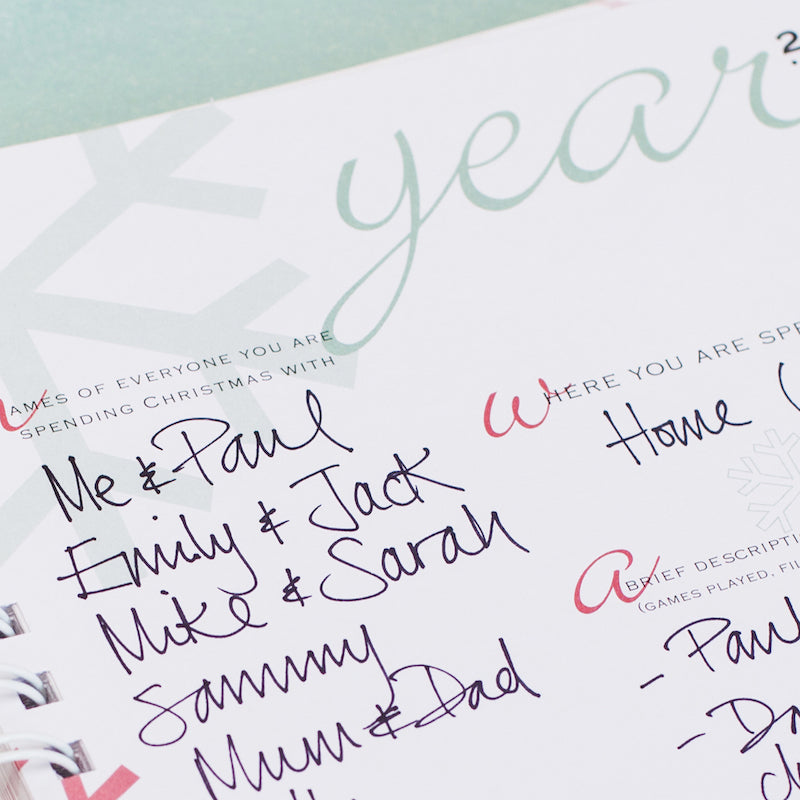 year
2
Names of everyone you are
spending Christmas with
Me & Paul
Emily & Jack
Mike & Sarah
Sammy
Mum & Dad
Where you are spe
Home
A brief descripti
(games played, fil
- Paul
- Da